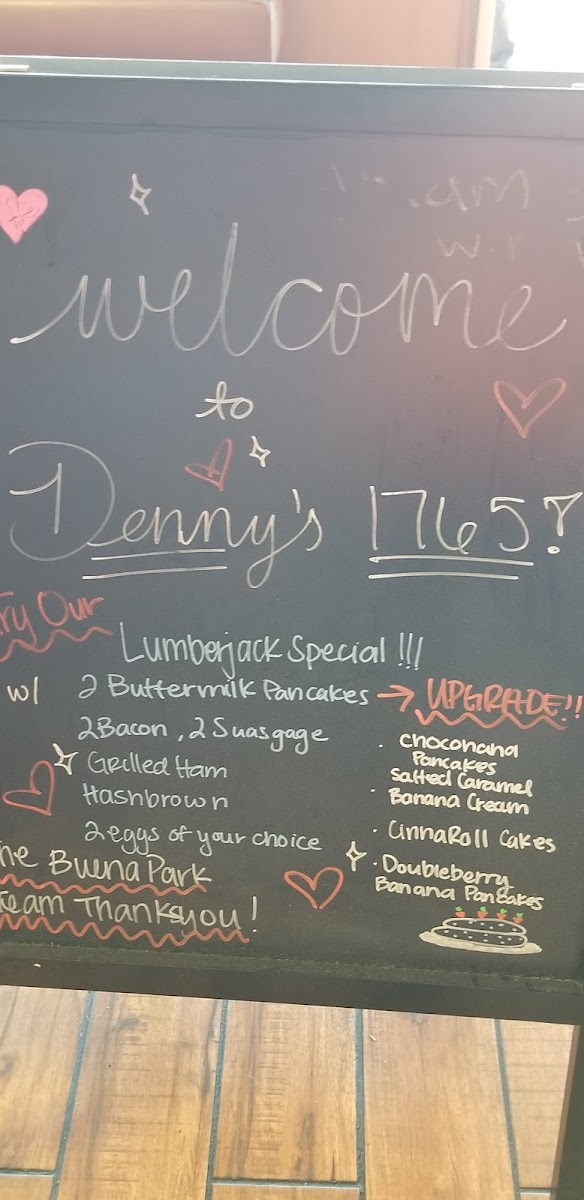 welcome
to
Denny's 1765!
Try Our
Lumberjack Special !!!
w/ 2 Buttermilk Pancakes → UPGRADE!!
2 Bacon, 2 Suasgage
Grilled Ham
Hashbrown
2 eggs of your choice
· Choconana
Pancakes
· Salted Caramel
Banana Cream
· CinnaRoll Cakes
· Doubleberry
Banana Pancakes
The Buena Park
Team Thanksyou!